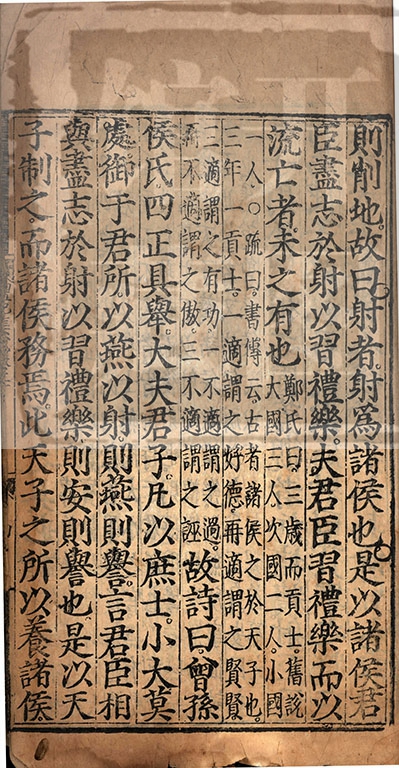 則削地故曰射者射爲諸侯也是以諸侯君
臣盡志於射以習禮樂夫君臣習禮樂而以
流亡者未之有也鄭氏曰三歲而貢士舊說
大國三人次國二人小國
一人○疏曰書傳云古者諸侯之於天子也
三年一貢士一適謂之好德再適謂之賢賢
三適謂之有功一不適謂之過
再不適謂之傲三不適謂之誣故詩曰曾孫
侯氏四正具舉大夫君子凡以庶士小大莫
處御于君所以燕以射則燕則譽言君臣相
與盡志於射以習禮樂則安則譽也是以天
子制之而諸侯務焉此天子之所以養諸侯